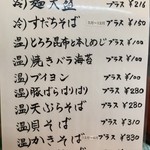 冷)麺大盛 プラス ¥216
冷)すだちそば プラス ¥150
温)とろろ昆布と本しめじ プラス ¥100
温)焼きバラ海苔 プラス ¥100
温)ブイヨン プラス ¥100
温)豚ばらばりばり プラス ¥280
温)天ぷらそば プラス ¥280
温)貝そば プラス ¥310
温)かきそば プラス ¥330